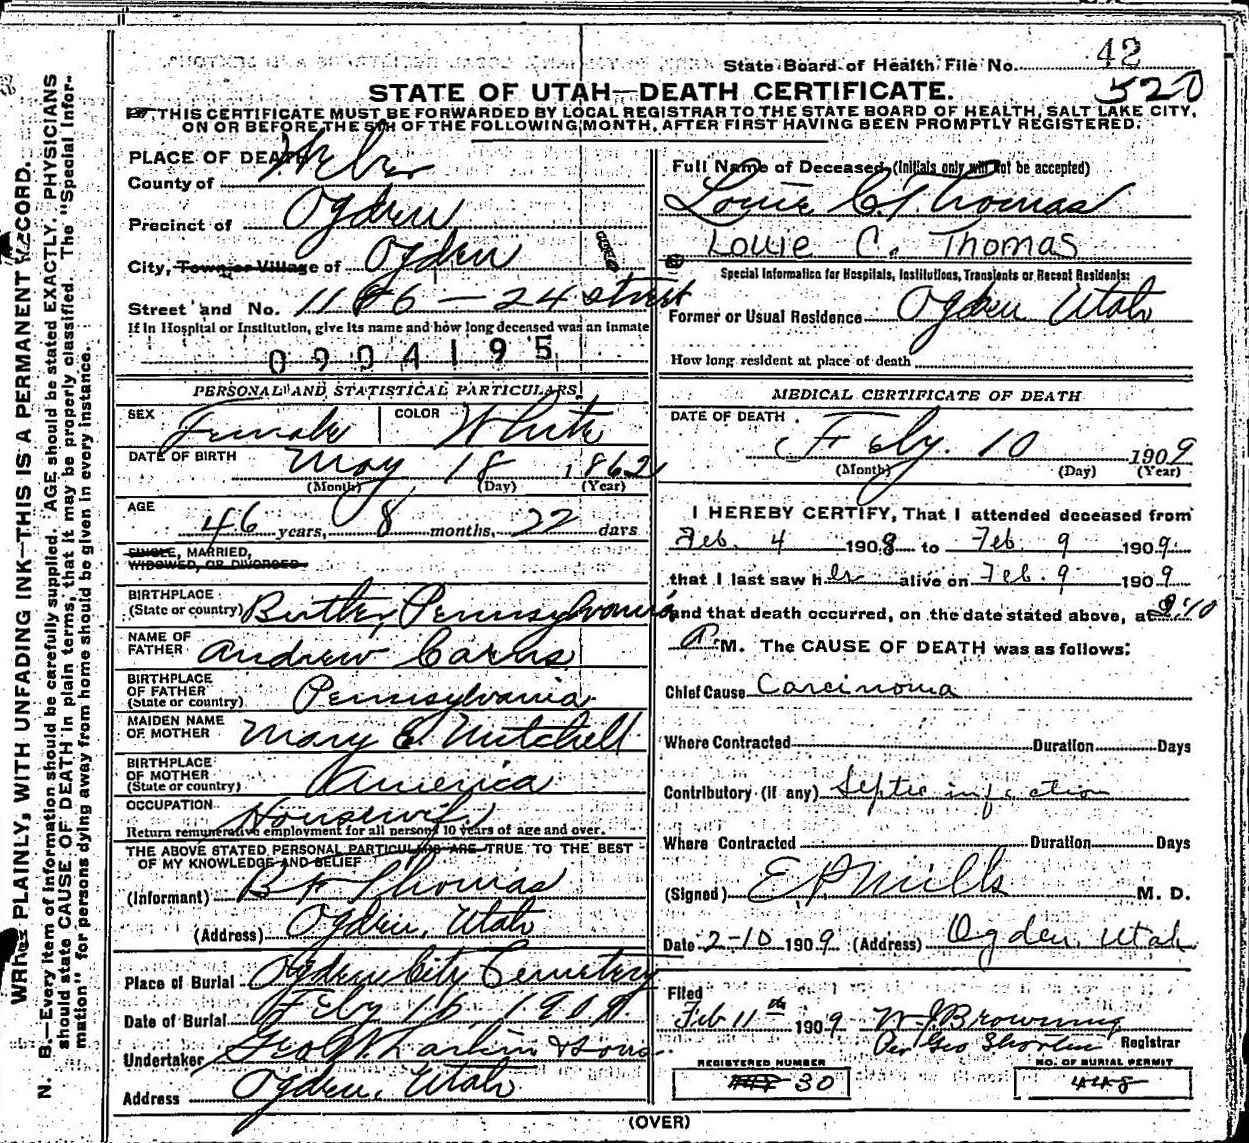 42
State Board of Health File No.
520
STATE OF UTAH—DEATH CERTIFICATE.
THIS CERTIFICATE MUST BE FORWARDED BY LOCAL REGISTRAR TO THE STATE BOARD OF HEALTH, SALT LAKE CITY,
ON OR BEFORE THE 5TH OF THE FOLLOWING MONTH, AFTER FIRST HAVING BEEN PROMPTLY REGISTERED.
PLACE OF DEATH
County of Weber
Precinct of Ogden
City, Town or Village of Ogden
Street and No. 1186 — 24 street
If in Hospital or Institution, give its name and how long deceased was an inmate
0904195
PERSONAL AND STATISTICAL PARTICULARS
SEX Female COLOR White
DATE OF BIRTH May 18 1862
(Month) (Day) (Year)
AGE 46 years, 8 months, 22 days
SINGLE, MARRIED,
WIDOWED, OR DIVORCED
BIRTHPLACE
(State or country) Butler, Pennsylvania
NAME OF
FATHER Andrew Carns
BIRTHPLACE
OF FATHER
(State or country) Pennsylvania
MAIDEN NAME
OF MOTHER Mary E. Mitchell
BIRTHPLACE
OF MOTHER
(State or country) America
OCCUPATION Housewife
Return remunerative employment for all persons 10 years of age and over.
THE ABOVE STATED PERSONAL PARTICULARS ARE TRUE TO THE BEST
OF MY KNOWLEDGE AND BELIEF
(Informant) B F Thomas
(Address) Ogden, Utah
Place of Burial Ogden City Cemetery
Date of Burial Feby 1909
Undertaker Geo W Larkin & Sons
Address Ogden, Utah
Full Name of Deceased (Initials only will not be accepted)
Louie C. Thomas
Louie C. Thomas
Special Information for Hospitals, Institutions, Transients or Recent Residents:
Former or Usual Residence Ogden Utah
How long resident at place of death
MEDICAL CERTIFICATE OF DEATH
DATE OF DEATH
Feby. 10 1909
(Month) (Day) (Year)
I HEREBY CERTIFY, That I attended deceased from
Feb. 4 1908 to Feb. 9 1909.
that I last saw her alive on Feb. 9 1909
and that death occurred, on the date stated above, at
M. The CAUSE OF DEATH was as follows:
Chief Cause Carcinoma
Where Contracted Duration Days
Contributory (if any) Septic infection
Where Contracted Duration Days
(Signed) E P Mills M. D.
Date 2-10 1909 (Address) Ogden, Utah
Filed
Feb 11th 1909 W J Browning
Per Geo Shorten Registrar
REGISTERED NUMBER NO. OF BURIAL PERMIT
30 448
(OVER)
N. B.—Every item of information should be carefully supplied. AGE should be stated EXACTLY. PHYSICIANS
should state CAUSE OF DEATH in plain terms, that it may be properly classified. The "Special Infor-
mation" for persons dying away from home should be given in every instance.
PLAINLY, WITH UNFADING INK—THIS IS A PERMANENT RECORD.